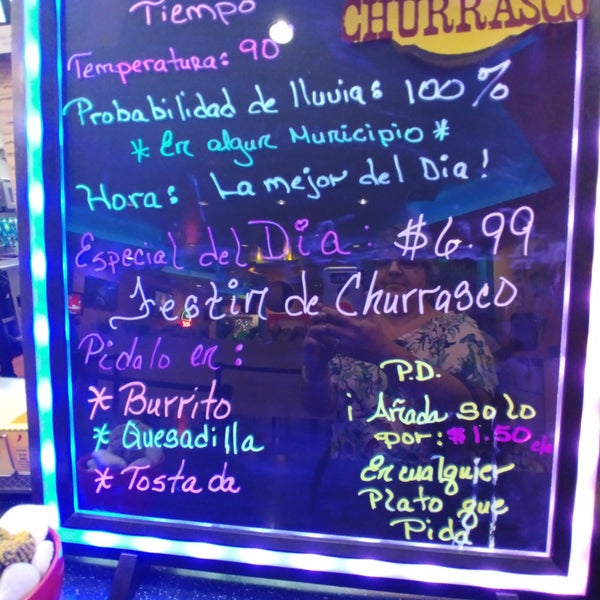 Tiempo
CHURRASCO
Temperatura: 90
Probabilidad de lluvia: 100%
* En algun Municipio *
Hora: La mejor del Dia!
Especial del Dia: $6.99
Festin de Churrasco
Pidalo en:
* Burrito
* Quesadilla
* Tostada
P.D.
¡ Añada solo
por: $1.50 c/u
En cualquier
Plato que
Pida